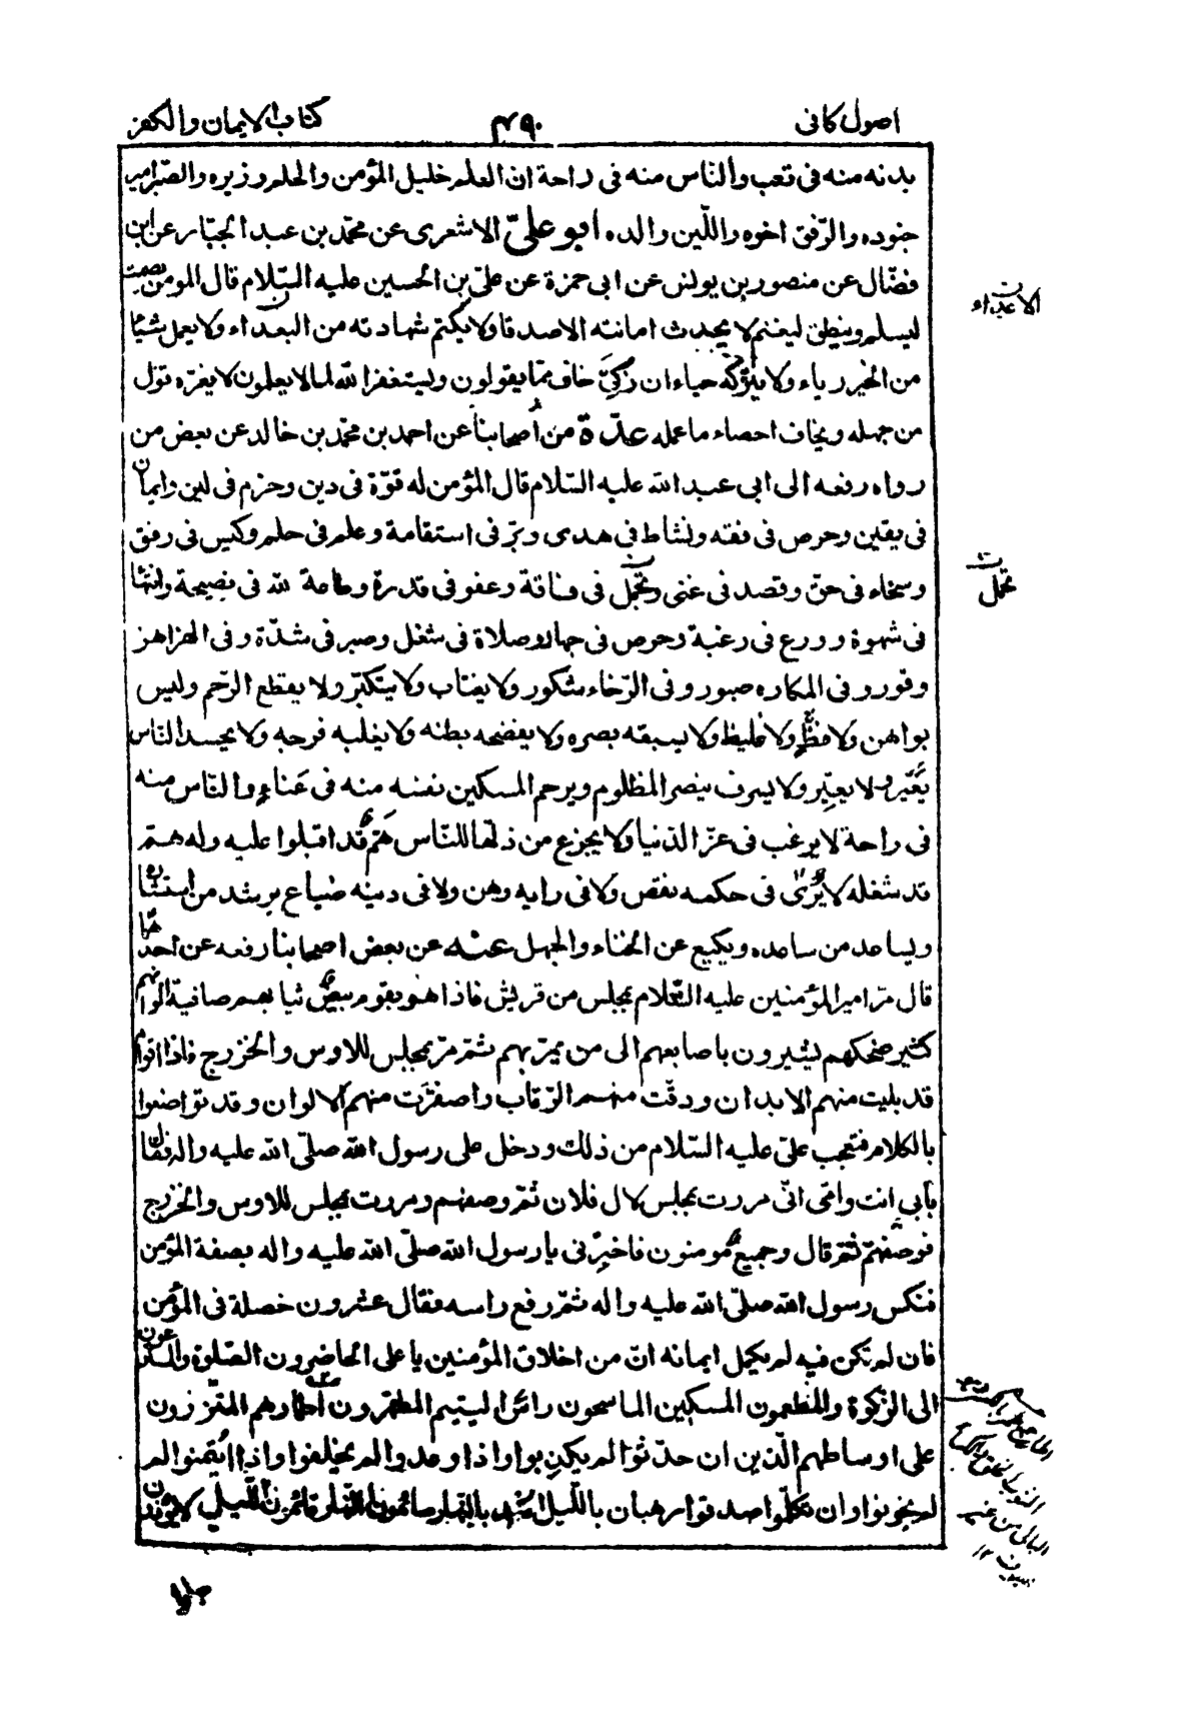 اصول كافى
٤٩٠
كتاب الايمان والكفر
بدنه منه فى تعب والناس منه فى راحة ان العلم خليل المؤمن والحلم وزيره والصّبر امير
جنوده والرّفق اخوه واللّين والده ابو علىّ الاشعرى عن محمّد بن عبد الجبّار عن ابن
فضّال عن منصور بن يونس عن ابى حمزة عن علىّ بن الحسين عليه السّلام قال المؤمن يصمت
ليسلم وينطق ليغنم لا يحدث امانته الاصدقا ولا يكتم شهادته من البعداء ولا يعمل شيئا
من الخير رياء ولا يتركه حياء ان زكّى خاف ممّا يقولون ويستغفر الله لما لا يعلمون لا يغرّه قول
من جهله ويخاف احصاء ما عمله عدّة من أصحابنا عن احمد بن محمّد بن خالد عن بعض من
رواه رفعه الى ابى عبد الله عليه السّلام قال المؤمن له قوّة فى دين وحزم فى لين وايمان
فى يقين وحرص فى فقه ونشاط فى هدى وبرّ فى استقامة وعلم فى حلم وكيس فى رفق
وسخاء فى حق وقصد فى غنى وتجمّل فى فاقة وعفو فى قدرة وطاعة لله فى نصيحة وانتها
فى شهوة وورع فى رغبة وحرص فى جهاد وصلاة فى شغل وصبر فى شدّة وفى الهزاهز
وقور وفى المكاره صبور وفى الرّخاء شكور ولا يغتاب ولا يتكبّر ولا يقطع الرّحم وليس
بواهن ولا فظّ ولا غليظ ولا يسبقه بصره ولا يفضحه بطنه ولا يغلبه فرجه ولا يحسد الناس
يعيّر ولا يعيّر ولا يسرف ينصر المظلوم ويرحم المسكين نفسه منه فى عَناءٍ والنّاس منه
فى راحة لا يرغب فى عزّ الدّنيا ولا يجزع من ذلّها للنّاس هَمّ قد اقبلوا عليه وله همّ
قد شغله لا يُرى فى حكمه نقص ولا فى رايه وهن ولا فى دينه ضياع يرشد من استشاره
ويساعد من ساعده ويكيع عن الخناء والجهل عنه عن بعض اصحابنا رفعه عن احدهما
قال مرّ امير المؤمنين عليه السّلام بمجلس من قريش فاذا هو بقوم بيض ثيابهم صافية الوانهم
كثير ضحكهم يشيرون باصابعهم الى من يمرّ بهم ثمّ مرّ بمجلس للاوس والخزرج فاذا اقوام
قد بليت منهم الابدان ودقّت منهم الرّقاب واصفرّت منهم الالوان وقد تواضعوا
بالكلام فتعجب علىّ عليه السّلام من ذلك ودخل على رسول الله صلّى الله عليه واله فقال
بأبى انت وامّى انّى مررت بمجلس لال فلان ثمّ وصفهم ومررت بمجلس للاوس والخزرج
فوصفهم ثمّ قال وجميع مومنون فاخبرنى يا رسول الله صلّى الله عليه واله بصفة المؤمن
فنكس رسول الله صلّى الله عليه واله ثمّ رفع راسه فقال عشرون خصلة فى المؤمن
فان لم تكن فيه لم يكمل ايمانه انّ من اخلاق المؤمنين يا على الحاضرون الصّلوة والمسارعون
الى الزّكوة والمطعمون المسكين الماسحون رأس اليتيم المطهّرون اطمارهم المتّزرون
على اوساطهم الّذين ان حدّثوا لم يكذبوا واذا وعدوا لم يخلفوا واذا ائتمنوا لم
لم يخونوا وان تكلّموا صدقوا رهبان بالّليل اسد بالنّهار صائمون النّهار قائمون اللّيل لا يؤذون
الاعداء
تحمل
جارا